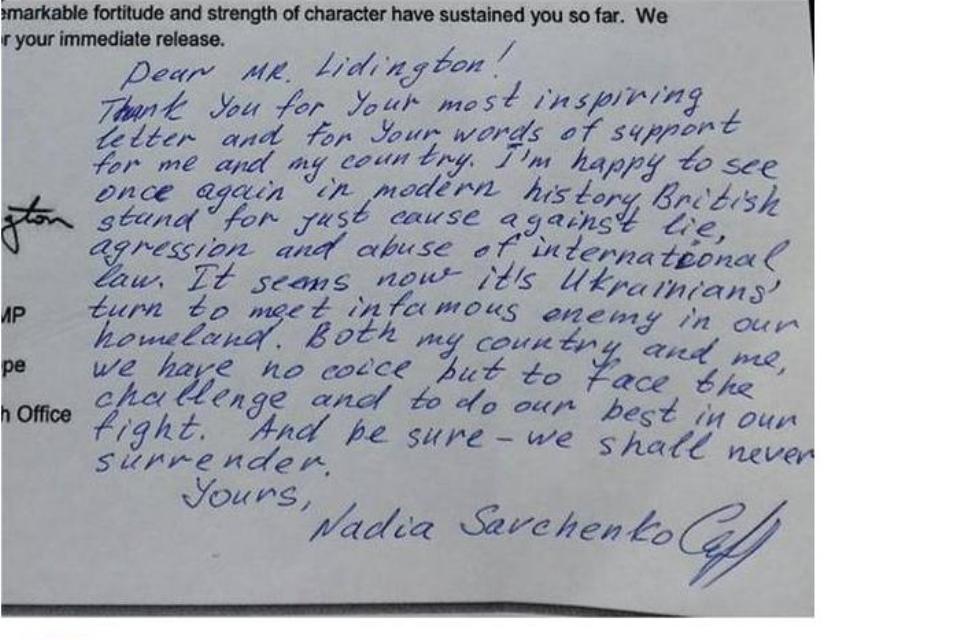 emarkable fortitude and strength of character have sustained you so far. We
r your immediate release.
Dear MR. Lidington!
Thank You for Your most inspiring
letter and for Your words of support
for me and my country. I'm happy to see
once again in modern history British
stand for just cause against lie,
agression and abuse of international
law. It seems now it's Ukrainians'
turn to meet infamous enemy in our
homeland. Both my country and me,
we have no coice but to face the
challenge and to do our best in our
fight. And be sure – we shall never
surrender.
Yours,
Nadia Savchenko
gton
MP
pe
h Office